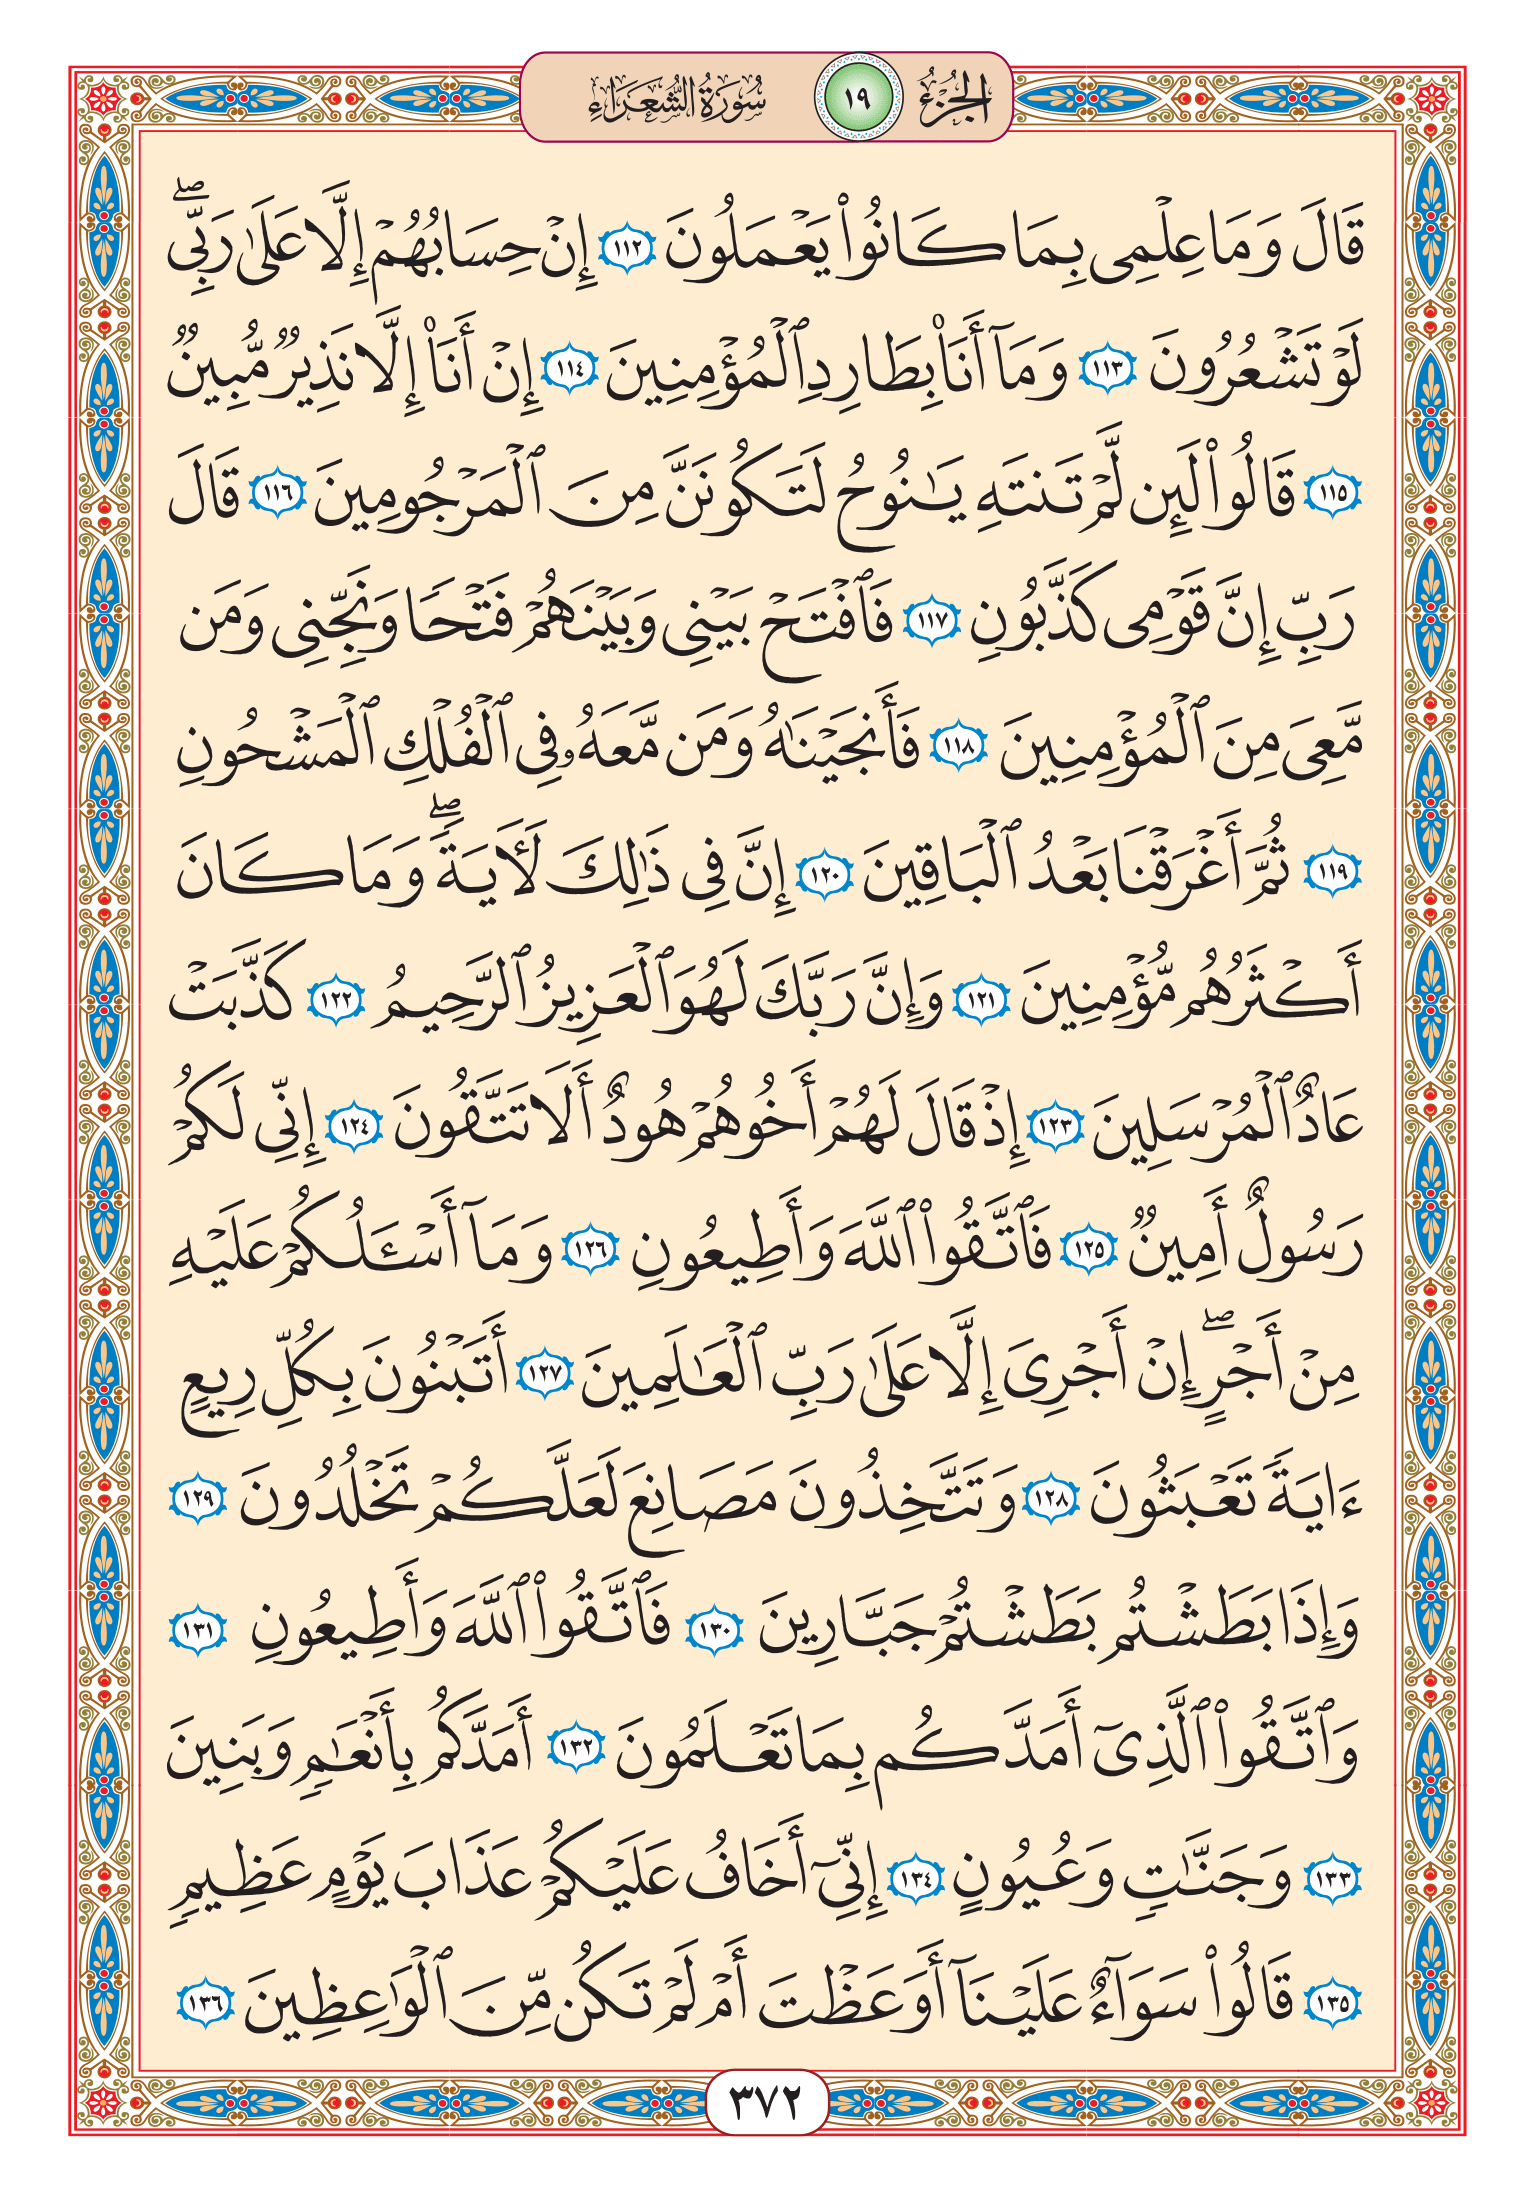 الجُزْءُ ١٩ سُورَةُ الشُّعَرَاءِ
قَالَ وَمَا عِلْمِى بِمَا كَانُوا۟ يَعْمَلُونَ ١١٢ إِنْ حِسَابُهُمْ إِلَّا عَلَىٰ رَبِّىۖ
لَوْ تَشْعُرُونَ ١١٣ وَمَآ أَنَا۠ بِطَارِدِ ٱلْمُؤْمِنِينَ ١١٤ إِنْ أَنَا۠ إِلَّا نَذِيرٌ مُّبِينٌ
١١٥ قَالُوا۟ لَئِن لَّمْ تَنتَهِ يَـٰنُوحُ لَتَكُونَنَّ مِنَ ٱلْمَرْجُومِينَ ١١٦ قَالَ
رَبِّ إِنَّ قَوْمِى كَذَّبُونِ ١١٧ فَٱفْتَحْ بَيْنِى وَبَيْنَهُمْ فَتْحًا وَنَجِّنِى وَمَن
مَّعِىَ مِنَ ٱلْمُؤْمِنِينَ ١١٨ فَأَنجَيْنَـٰهُ وَمَن مَّعَهُۥ فِى ٱلْفُلْكِ ٱلْمَشْحُونِ
١١٩ ثُمَّ أَغْرَقْنَا بَعْدُ ٱلْبَاقِينَ ١٢٠ إِنَّ فِى ذَٰلِكَ لَـَٔايَةًۖ وَمَا كَانَ
أَكْثَرُهُم مُّؤْمِنِينَ ١٢١ وَإِنَّ رَبَّكَ لَهُوَ ٱلْعَزِيزُ ٱلرَّحِيمُ ١٢٢ كَذَّبَتْ
عَادٌ ٱلْمُرْسَلِينَ ١٢٣ إِذْ قَالَ لَهُمْ أَخُوهُمْ هُودٌ أَلَا تَتَّقُونَ ١٢٤ إِنِّى لَكُمْ
رَسُولٌ أَمِينٌ ١٢٥ فَٱتَّقُوا۟ ٱللَّهَ وَأَطِيعُونِ ١٢٦ وَمَآ أَسْـَٔلُكُمْ عَلَيْهِ
مِنْ أَجْرٍۖ إِنْ أَجْرِىَ إِلَّا عَلَىٰ رَبِّ ٱلْعَـٰلَمِينَ ١٢٧ أَتَبْنُونَ بِكُلِّ رِيعٍ
ءَايَةً تَعْبَثُونَ ١٢٨ وَتَتَّخِذُونَ مَصَانِعَ لَعَلَّكُمْ تَخْلُدُونَ ١٢٩
وَإِذَا بَطَشْتُم بَطَشْتُمْ جَبَّارِينَ ١٣٠ فَٱتَّقُوا۟ ٱللَّهَ وَأَطِيعُونِ ١٣١
وَٱتَّقُوا۟ ٱلَّذِىٓ أَمَدَّكُم بِمَا تَعْلَمُونَ ١٣٢ أَمَدَّكُم بِأَنْعَـٰمٍ وَبَنِينَ
١٣٣ وَجَنَّـٰتٍ وَعُيُونٍ ١٣٤ إِنِّىٓ أَخَافُ عَلَيْكُمْ عَذَابَ يَوْمٍ عَظِيمٍ
١٣٥ قَالُوا۟ سَوَآءٌ عَلَيْنَآ أَوَعَظْتَ أَمْ لَمْ تَكُن مِّنَ ٱلْوَٰعِظِينَ ١٣٦
٣٧٢